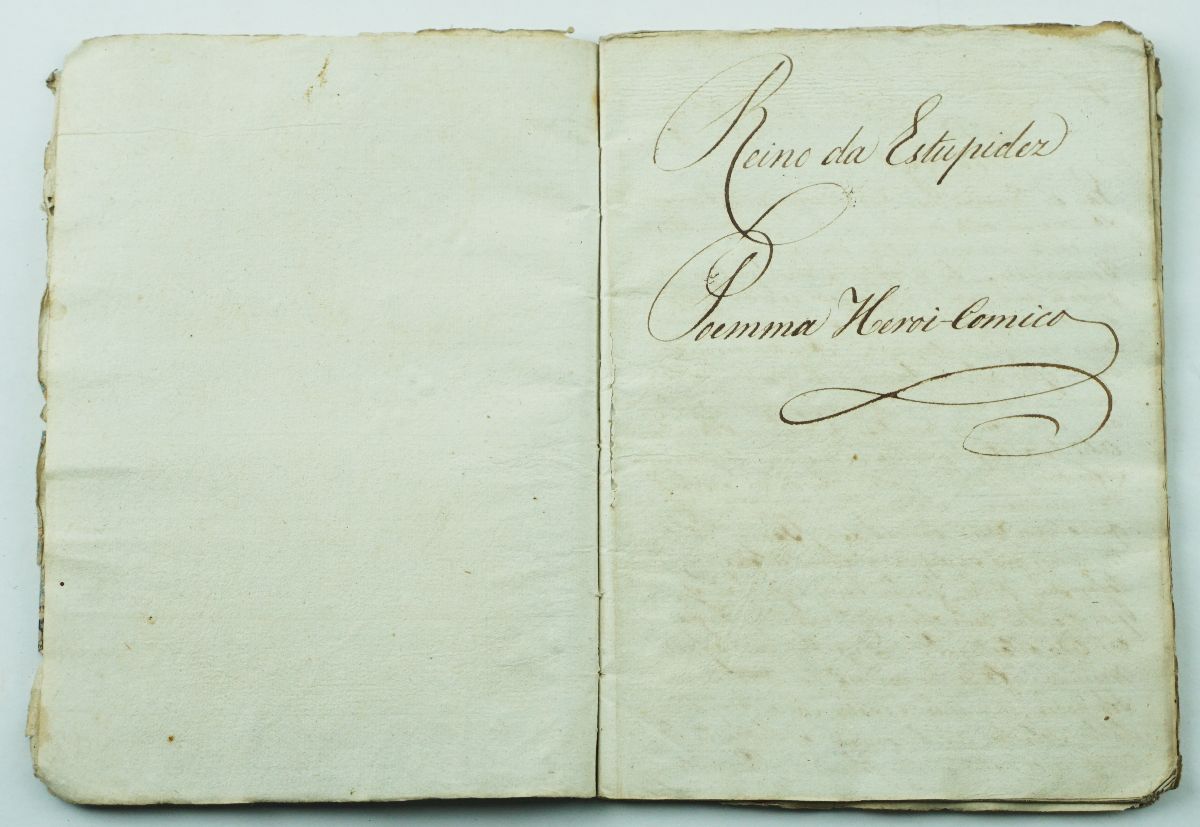 Reino da Estupidez
Poemma Heroi-Comico